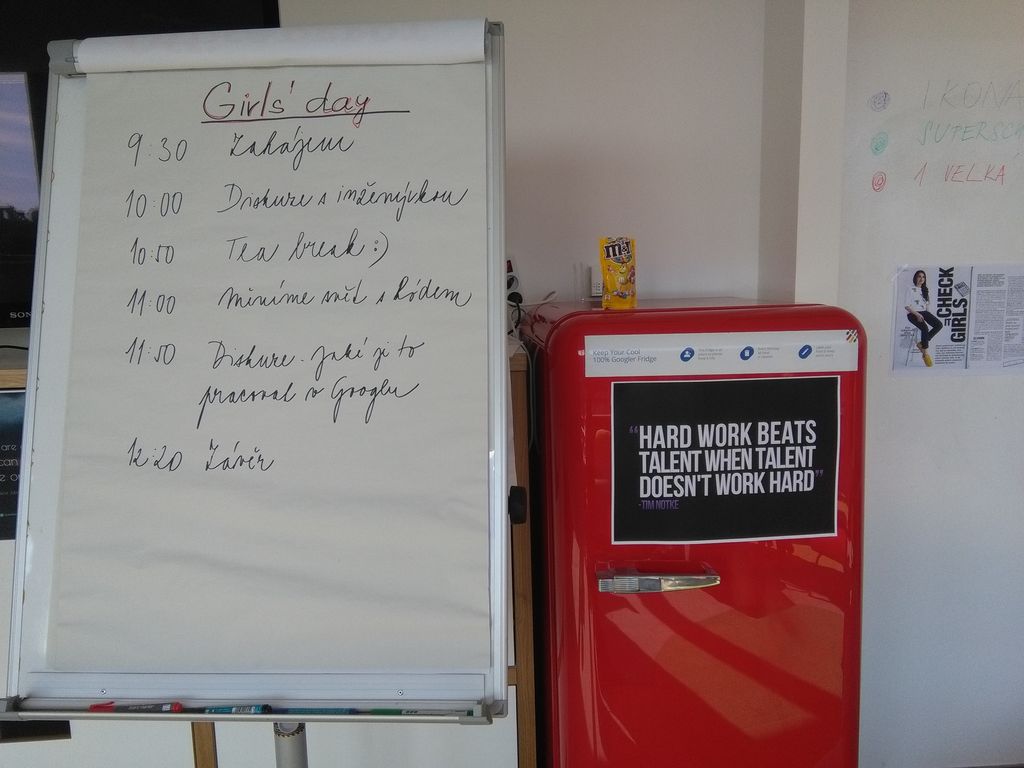 Girls' day
9:30 Zahájení
10:00 Diskuze s inženýrkou
10:50 Tea break :)
11:00 Měníme svět s kódem
11:50 Diskuze - jaké je to
pracovat v Googlu
12:20 Závěr
m&m's
Keep Your Cool
100% Googler Fridge
"HARD WORK BEATS
TALENT WHEN TALENT
DOESN'T WORK HARD"
-TIM NOTKE
1. KONA
SUPERSC
1 VELKÁ
CHECK
IT
GIRLS
SON